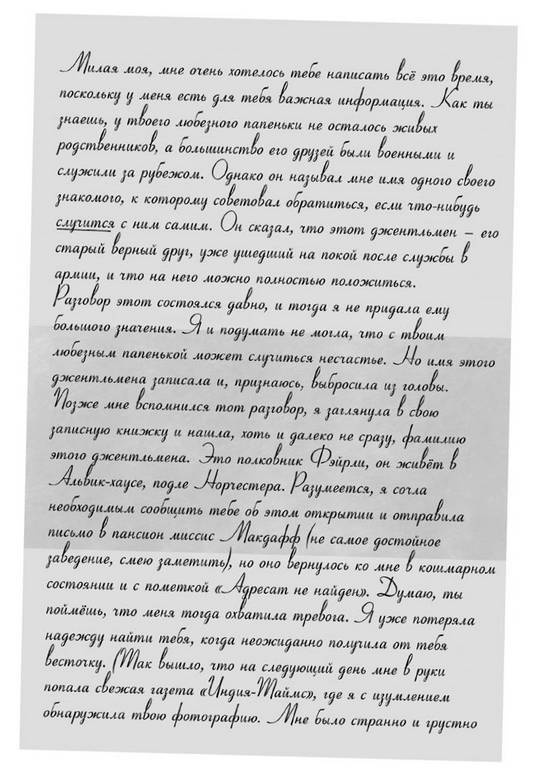 Милая моя, мне очень хотелось тебе написать всё это время,
поскольку у меня есть для тебя важная информация. Как ты
знаешь, у твоего любезного папеньки не осталось живых
родственников, а большинство его друзей были военными и
служили за рубежом. Однако он называл мне имя одного своего
знакомого, к которому советовал обратиться, если что-нибудь
случится с ним самим. Он сказал, что этот джентльмен – его
старый верный друг, уже ушедший на покой после службы в
армии, и что на него можно полностью положиться.
Разговор этот состоялся давно, и тогда я не придала ему
большого значения. Я и подумать не могла, что с твоим
любезным папенькой может случиться несчастье. Но имя этого
джентльмена записала и, признаюсь, выбросила из головы.
Позже мне вспомнился тот разговор, я заглянула в свою
записную книжку и нашла, хоть и далеко не сразу, фамилию
этого джентльмена. Это полковник Фэйрли, он живёт в
Альвик-хаусе, подле Норчестера. Разумеется, я сочла
необходимым сообщить тебе об этом открытии и отправила
письмо в пансион миссис Макдафф (не самое достойное
заведение, смею заметить), но оно вернулось ко мне в кошмарном
состоянии и с пометкой «Адресат не найден». Думаю, ты
поймёшь, что меня тогда охватила тревога. Я уже потеряла
надежду найти тебя, когда неожиданно получила от тебя
весточку. (Так вышло, что на следующий день мне в руки
попала свежая газета «Индия-Таймс», где я с изумлением
обнаружила твою фотографию. Мне было странно и грустно